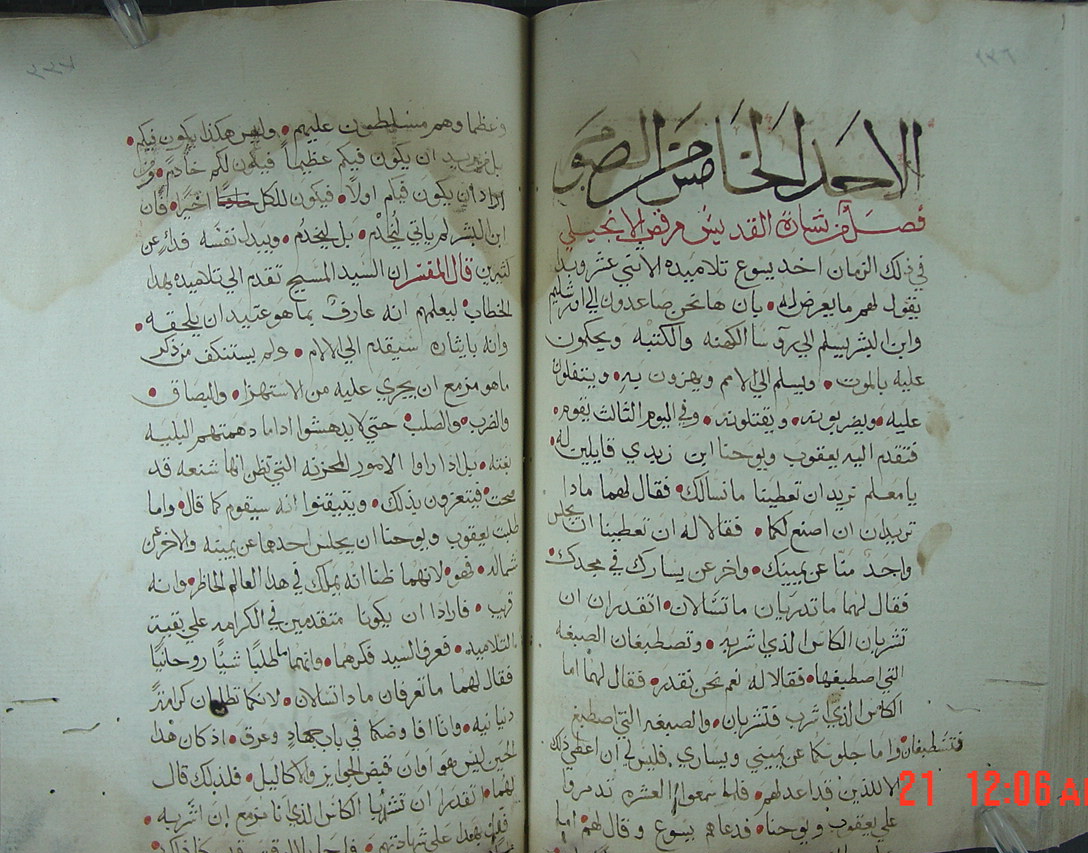 ٢٣٦
الاحد الخامس من الصوم
فصل من بشارة القديس مرقص الانجيلي
في ذلك الزمان اخد يسوع تلاميذه الاثني عشر وبدا
يقول لهم ما يعرض له • بان ها نحن صاعدون الى اورشليم
وابن البشر يسلم الى روسا الكهنه والكتبه ويحكمون
عليه بالموت • ويسلم الى الامم ويهزون به • ويتفلون
عليه • ويضربونه • ويقتلونه • وفي اليوم الثالث يقوم •
فتقدم اليه يعقوب ويوحنا ابن زبدي قايلين له •
يا معلم نريد ان تعطينا ما نسالك • فقال لهما مادا
تريدان ان اصنع لكما • فقالا له ان تعطينا ان يجلس
واحد منا عن يمينك • واخر عن يسارك في مجدك •
فقال لهما ما تدريان ما تسالان • اتقدران ان
تشربان الكاس الذي اشربه • وتصطبغان الصبغه
التي اصطبغها • فقالا له نعم نحن نقدر • فقال لهما اما
الكاس الذي اشرب فتشربان • والصبغه التي اصطبغ
فتسطبغان • واما جلوسكما عن يميني ويساري • فليس لي ان اعطي ذلك
الا للذين قد اعد لهم • فلما سمعوا العشره تدمروا
علي يعقوب ويوحنا • فدعاهم يسوع وقال لهم اما
وعظما وهم مسلطون عليهم • وليس هكذا يكون فيكم •
بل من يريد ان يكون فيكم عظيما فيكون لكم خادم • ومن
اراد ان يكون فيكم اولا • فيكون للكل اخيرا • فان
ابن البشر لم ياتي ليُخدم • بل ليَخدم • ويبدل نفسه فدا عن
كثيرين قال المفسر ان السيد المسيح تقدم الى تلاميده بهدا
الخطاب ليعلمهم انه عارف بما هو عتيد ان يلحقه •
وانه بايثاره سيقدم الى الالام • ولم يستنكف من ذكر
ما هو مزمع ان يجري عليه من الاستهزا • والبصاق •
والضرب • والصلب حتي لا يدهشوا ادا ما دهمتهم البليه
بغته • بل اذا راوا الامور المحزنه التي تظن انها شنعه قد
صحت • فيتعزون بذلك • ويتيقنوا انه سيقوم كما قال • واما
طلبت يعقوب ويوحنا ان يجلس احدهما عن يمينه والاخر عن
شماله • فهو • لانهما ظنا انه يملك في هدا العالم الحاظر • وانه
قريب • فارادا ان يكونا متقدمين في الكرامه علي بقية
التلاميد • فعرف السيد فكرهما • وانهما ما طلبا شيا روحانيا
فقال لهما ما تعرفان مادا تسالان • لانكما تطلبان كرامة
دنيانيه • وانا افاوضكما في باب جهاد وعرق • اذ كان هذا
الحين ليس هو اوان قبض الجوايز والاكاليل • فلذلك قال
لهما • اتقدرا ان تشربا الكاس الذي انا مزمع ان اشربه •